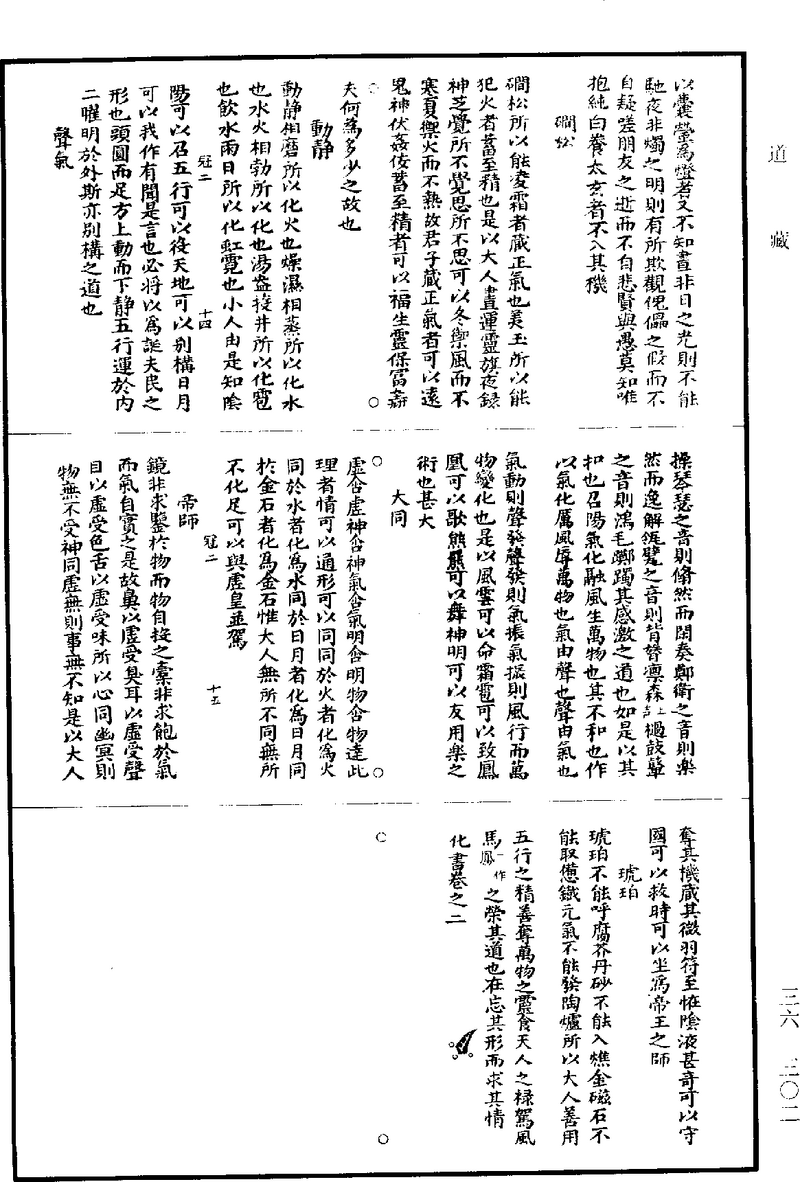 道藏
以囊螢為燈者又不知晝非日之光則不能
馳夜非燭之明則有所欺觀傀儡之假而不
自疑嗟朋友之逝而不自悲賢與愚莫知唯
抱純白養太玄者不入其機
磵松
磵松所以能凌霜者藏正氣也美玉所以能
犯火者蓄至精也是以大人晝運靈旗夜錄
神芝覺所不覺思所不思可以冬禦風而不
寒夏禦火而不熱故君子藏正氣者可以遠
鬼神伏姦佞蓄至精者可以福生靈保富壽
夫何為多少之故也
動靜
動靜相磨所以化火也燥濕相蒸所以化水
也水火相勃所以化也湯盎投井所以化雹
也飲水雨日所以化虹霓也小人由是知陰
冠二 十四
陽可以召五行可以役天地可以别構日月
可以我作有聞是言也必將以為誕夫民之
形也頭圓而足方上動而下靜五行運於內
二曜明於外斯亦别構之道也
聲氣
操琴瑟之音則翛然而閑奏鄭衛之音則樂
然而逸解瓴甓之音則背膂凜森撾鼓鞞
之音則鴻毛躑躅其感激之道也如是以其
和也召陽氣化融風生萬物也其不和也作
以氣化厲風辱萬物也氣由聲也聲由氣也
氣動則聲發聲發則氣振氣振則風行而萬
物變化也是以風雲可以命霜雹可以致鳳
凰可以歌熊羆可以舞神明可以友用樂之
術也甚大
大同
虛含虛神含神氣含氣明含明物含物達此
理者情可以通形可以同同於火者化為火
同於水者化為水同於日月者化為日月同
於金石者化為金石惟大人無所不同無所
不化足可以與虛皇並駕
冠二 十五
帝師
鏡非求鑒於物而物自投之橐非求飽於氣
而氣自實之是故鼻以虛受臭耳以虛受聲
目以虛受色舌以虛受味所以心同幽冥則
物無不受神同虛無則事無不知是以大人
奪其機藏其微羽符至怪陰液甚奇可以守
國可以救時可以坐為帝王之師
琥珀
琥珀不能呼腐芥丹砂不能入燋金磁石不
能取憊鐵元氣不能發陶爐所以大人善用
五行之精善奪萬物之靈食天人之祿駕風
馬一作鳳之榮其道也在忘其形而求其情
化書卷之二
三六 三〇二